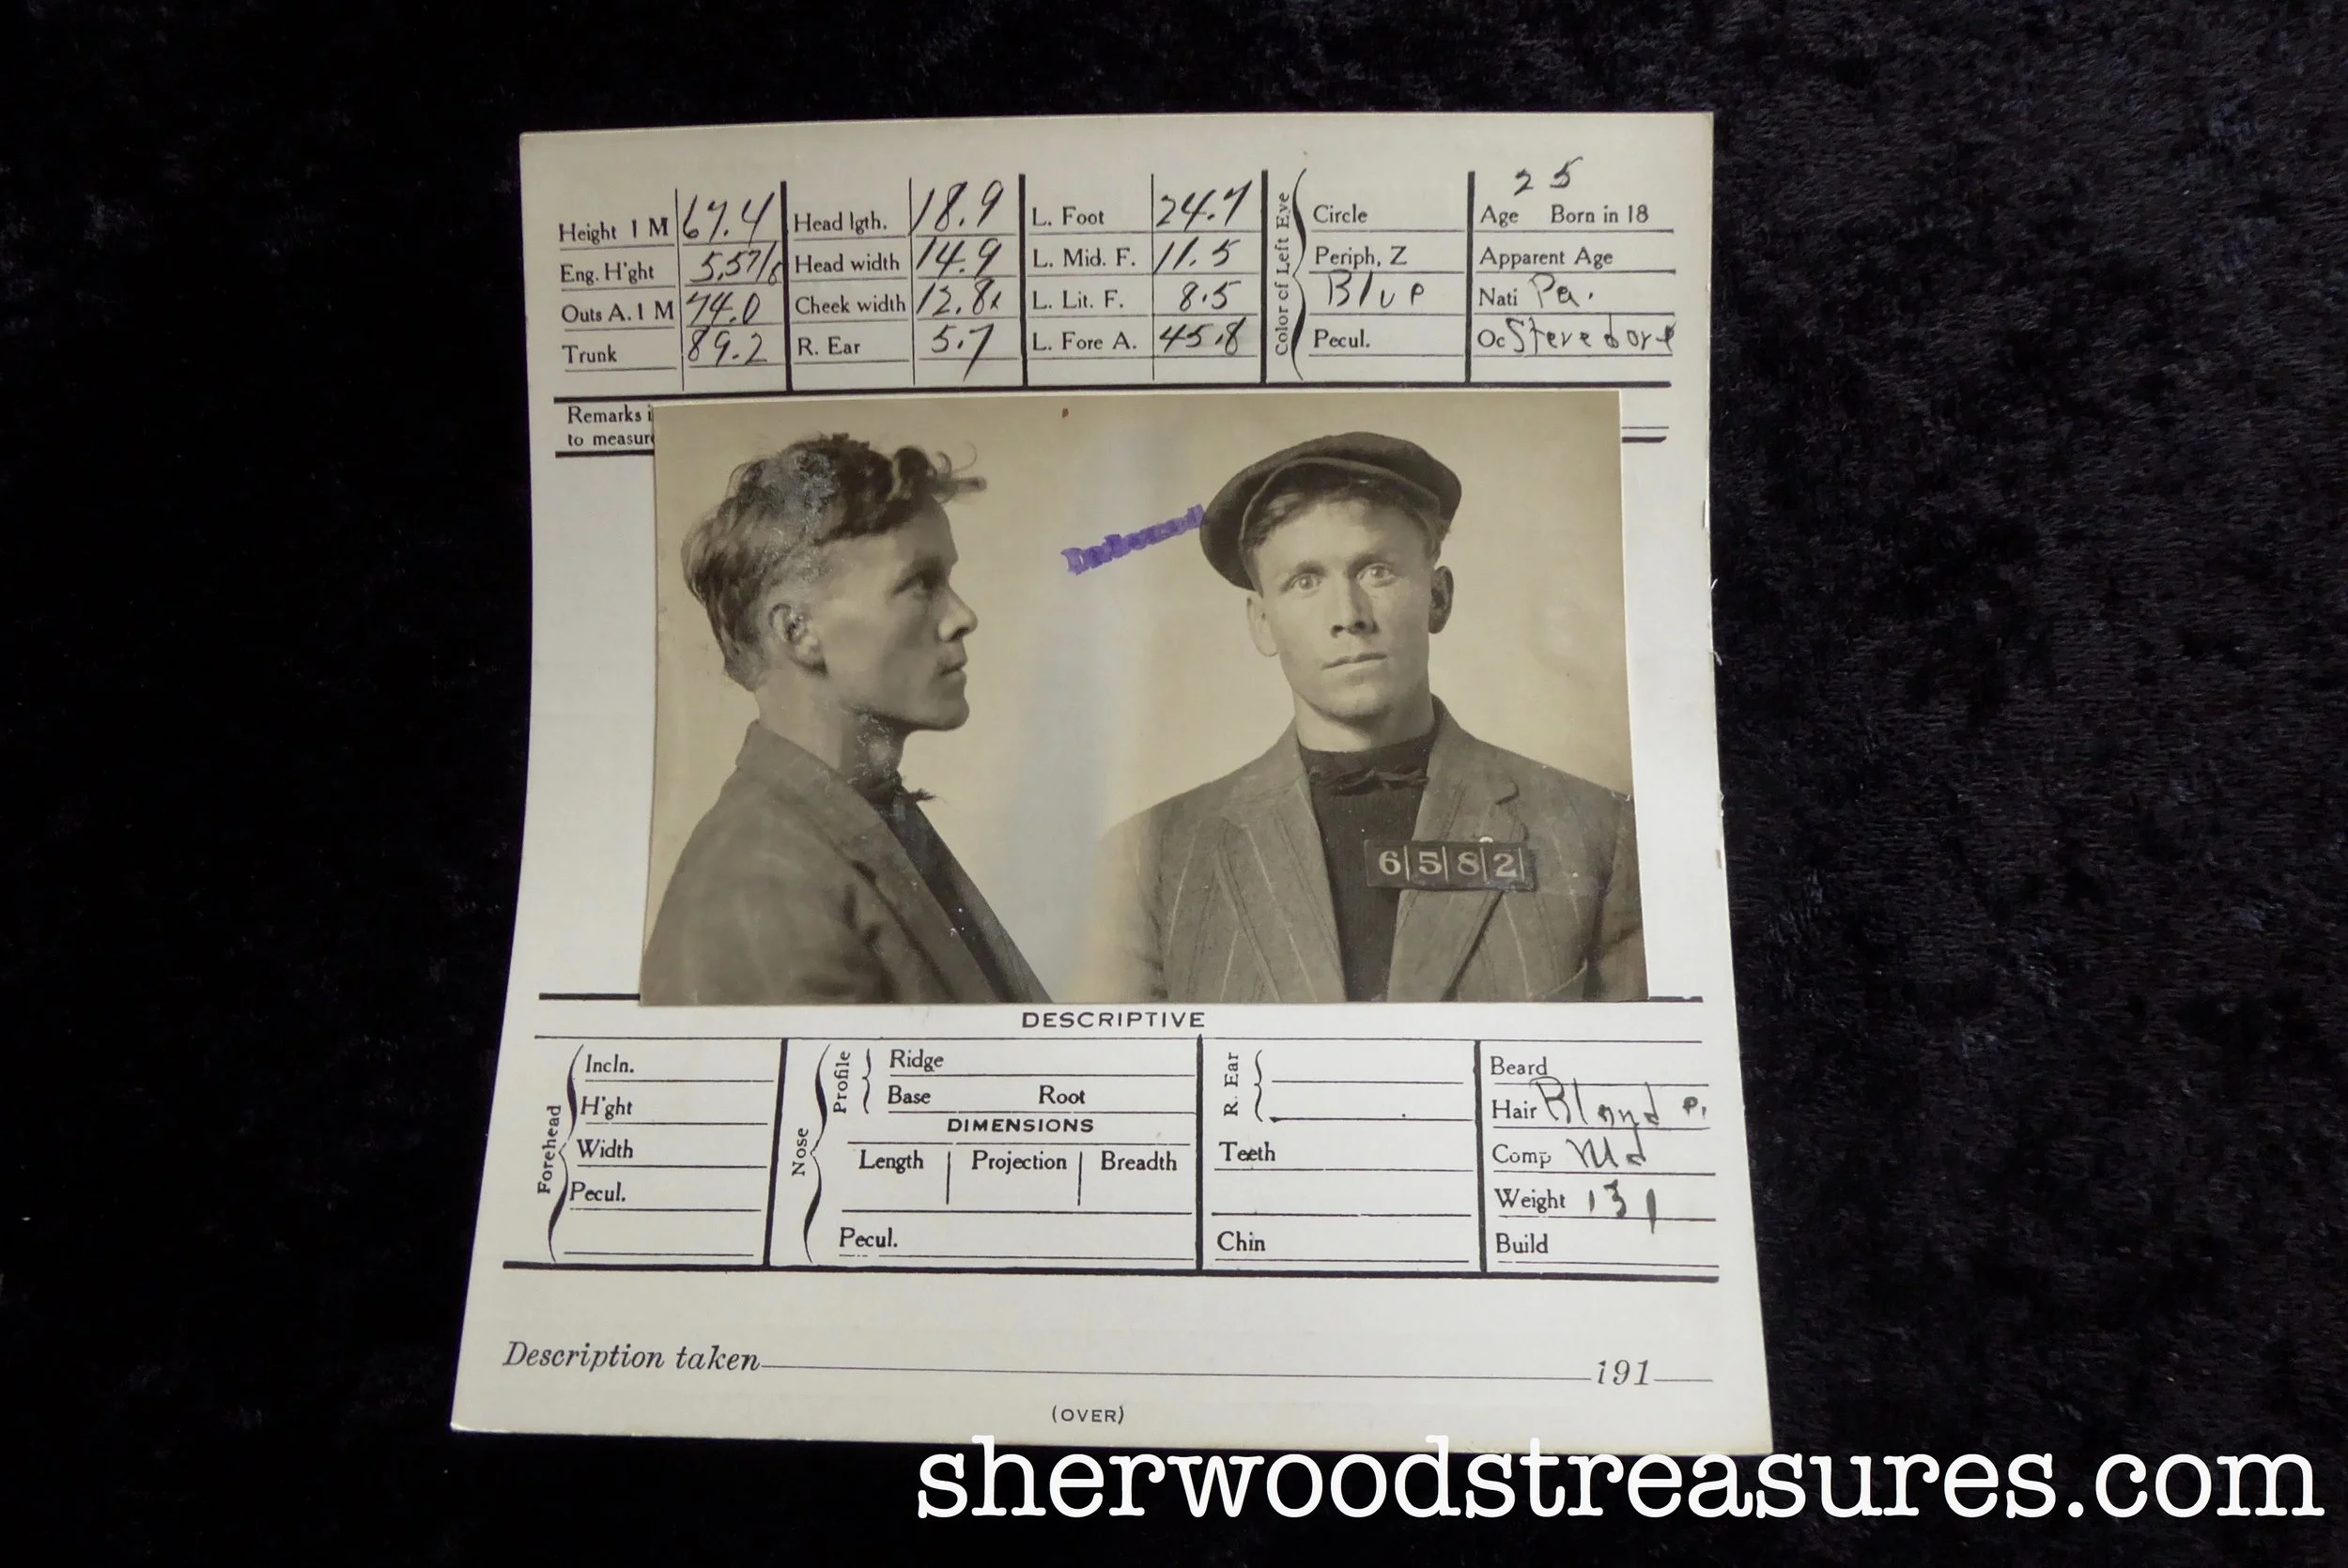 25
Height 1 M 67.4 Head lgth. 18.9 L. Foot 24.7 Circle Age Born in 18
Eng. H'ght 5,57/8 Head width 14.9 L. Mid. F. 11.5 Periph, Z Apparent Age
Outs A. 1 M 74.0 Cheek width L. Lit. F. 8.5 Blue Nati Pa.
Trunk 89.2 R. Ear 5.7 L. Fore A. 45.8 Pecul. Oc Stevedore
Color of Left Eye
Remarks
to measure
6582
DESCRIPTIVE
Incln. Profile Ridge R. Ear Beard
H'ght Base Root Hair Blond
DIMENSIONS
Forehead Width Nose Length Projection Breadth Teeth Comp Md
Pecul. Weight 131
Pecul. Chin Build
Description taken 191
(OVER)
sherwoodstreasures.com